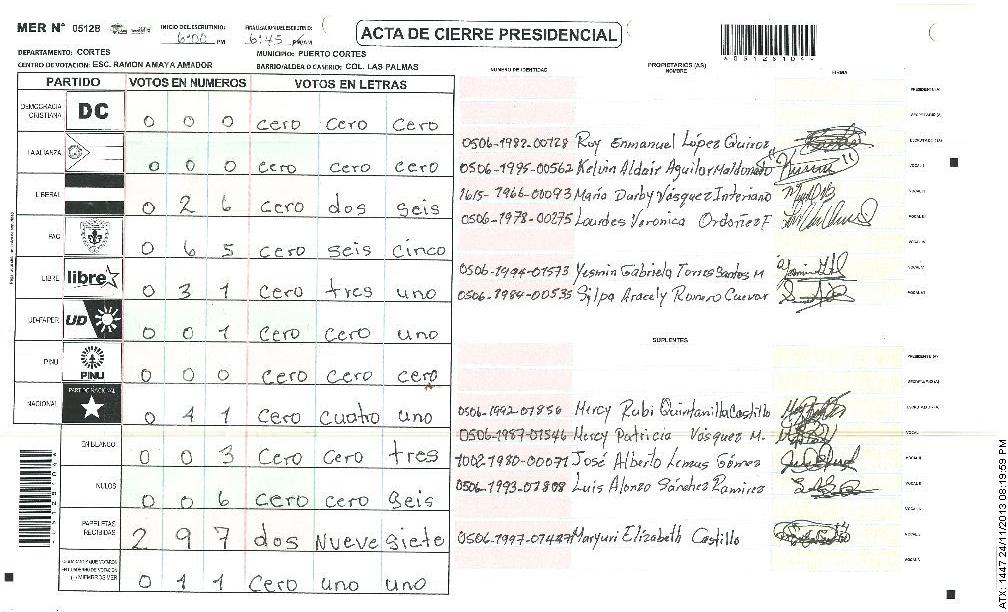 MER N° 05128
INICIO DEL ESCRUTINIO: 6:00 PM
FINALIZACION DEL ESCRUTINIO: 6:45 PM/AM
ACTA DE CIERRE PRESIDENCIAL
DEPARTAMENTO: CORTES
MUNICIPIO: PUERTO CORTES
CENTRO DE VOTACION: ESC. RAMON AMAYA AMADOR
BARRIO/ALDEA O CASERIO: COL. LAS PALMAS
NUMERO DE IDENTIDAD
PROPIETARIOS (AS)
NOMBRE
FIRMA
PARTIDO VOTOS EN NUMEROS VOTOS EN LETRAS
DEMOCRACIA CRISTIANA DC 0 0 0 cero cero cero
LA ALIANZA 0 0 0 cero cero cero
LIBERAL 0 2 6 cero dos seis
PAC 0 6 5 cero seis cinco
LIBRE libre 0 3 1 cero tres uno
UD-FAPER UD 0 0 1 cero cero uno
PINU PINU 0 0 0 cero cero cero
NACIONAL PARTIDO NACIONAL 0 4 1 cero cuatro uno
EN BLANCO 0 0 3 cero cero tres
NULOS 0 0 6 cero cero seis
PAPELETAS RECIBIDAS 2 9 7 dos nueve siete
MIEMBROS MER 0 1 1 cero uno uno
0506-1982-00728 Roy Enmanuel López Quiroz
0506-1995-00562 Kelvin Aldair Aguilar Maldonado
1615-1966-00093 Maria Darby Vásquez Interiano
0506-1978-00275 Lourdes Veronica Ordoñez F
0506-1994-01573 Yesmin Gabriela Torres Santos M
0506-1984-00535 Silpa Aracely Romero Cuevar
SUPLENTES
0506-1992-01856 Mercy Rubi Quintanilla Castillo
0506-1987-01546 Mercy Patricia Vásquez M.
1002-1980-00071 José Alberto Lemus Gómez
0506-1993-01808 Luis Alonzo Sánchez Ramirez
Maryuri Elizabeth Castillo
ATX: 1447 24/11/2013 08:19:59 PM